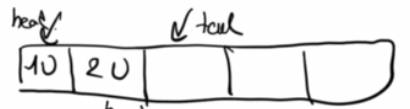 head tail
10 20